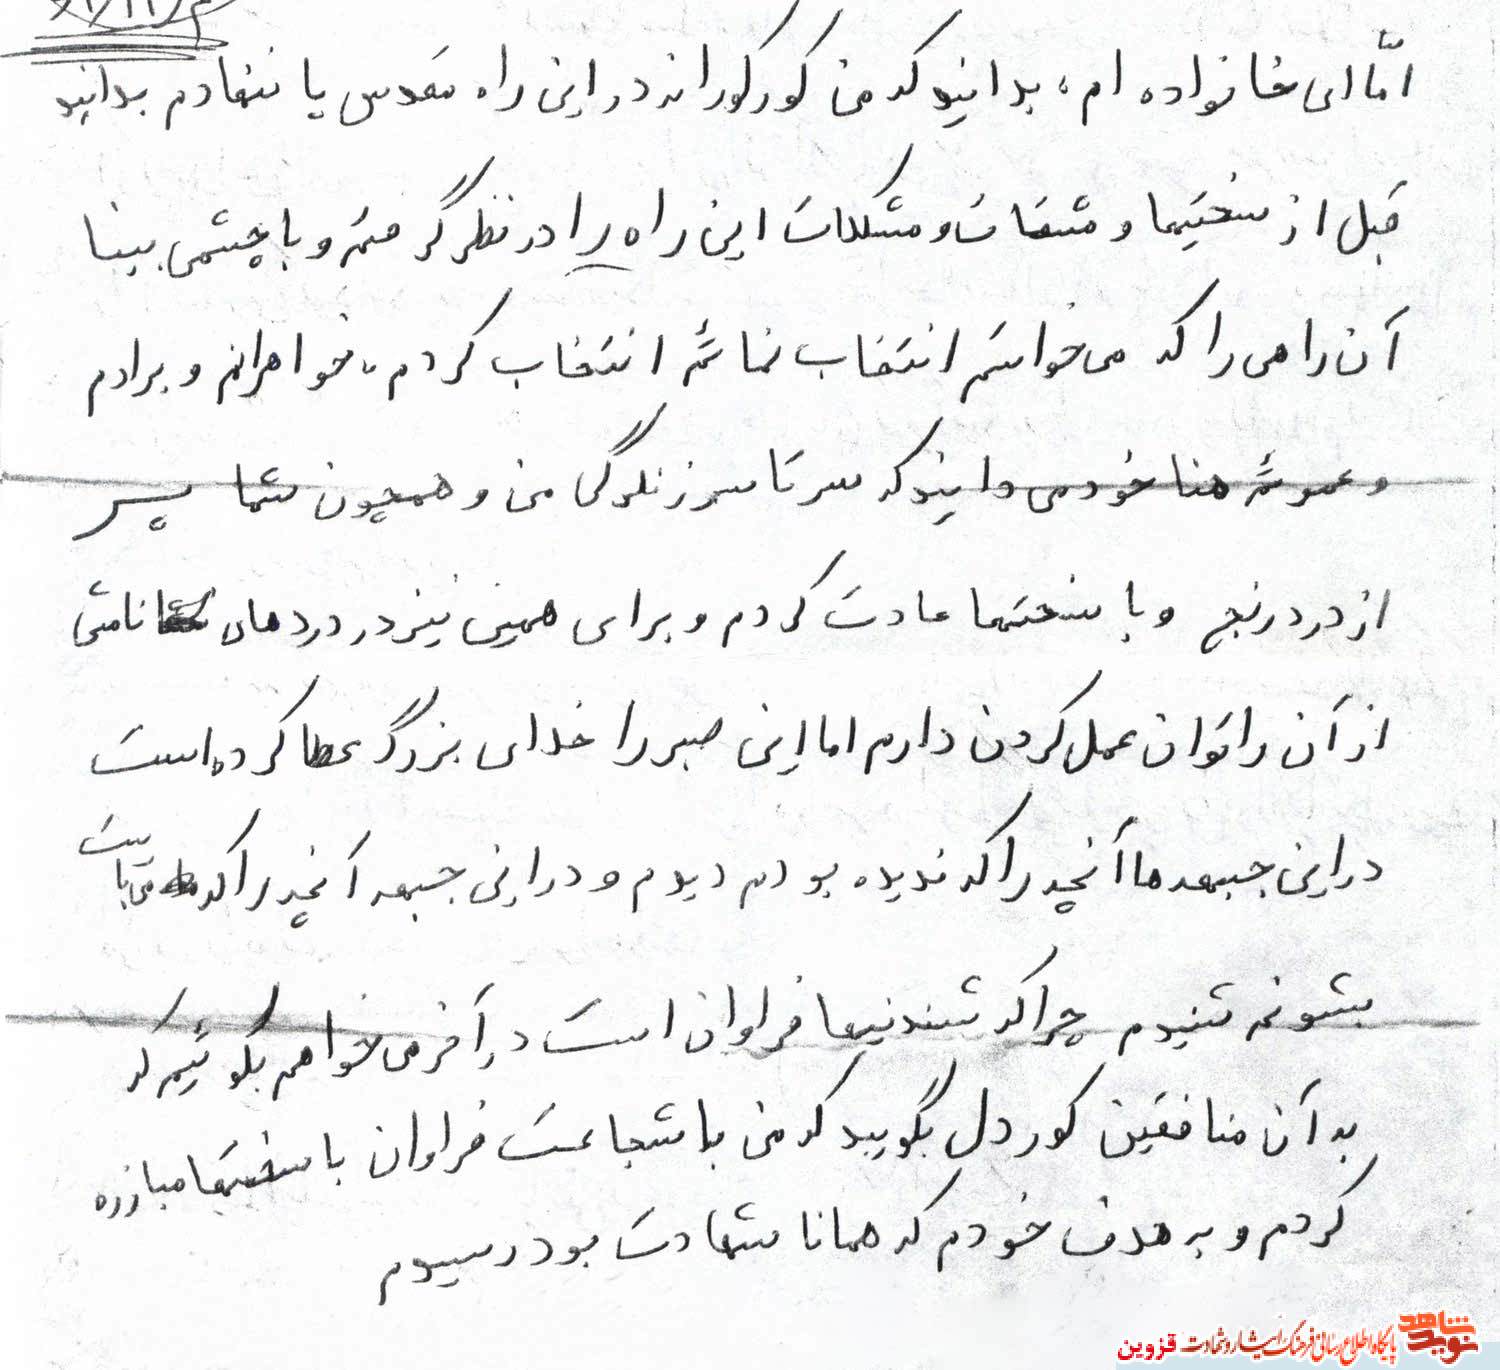 امّا ای خانواده ام، بدانید که من کورکورانه در این راه مقدس پا ننهادم بدانید
قبل از سختیها و مشقات و مشکلات این راه را در نظر گرفتم و با چشمی بینا
آن راهی را که می خواستم انتخاب نمائم انتخاب کردم، خواهرانم و برادرم
و عمو شما خود می دانید که سرتاسر زندگی من و همچون شما پر
از درد رنج و با سختیها عادت کردم و برای همین نیز در دردهای ناشی
از آن را توان عمل کردن دارم اما این صبر را خدای بزرگ عطا کرده است
در این جبهه ها آنچه را که ندیده بودم دیدم و در این جبهه آنچه را که می بایست
بشنوم شنیدم چرا که شنیدنیها فراوان است در آخر می خواهم بگوئیم که
به آن منافقین کور دل بگویید که من با شجاعت فراوان با سختیها مبارزه
کردم و به هدف خودم که همانا شهادت بود رسیدم
نوید شاهد
پایگاه اطلاع رسانی فرهنگ ایثار و شهادت قزوین